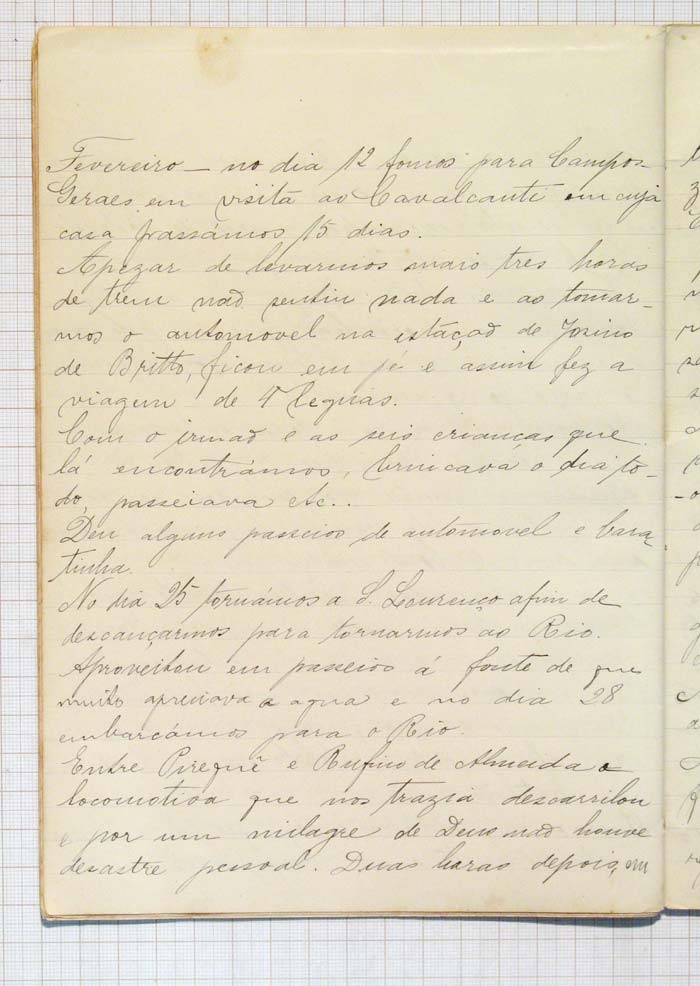 Fevereiro — no dia 12 fomos para Campos
Geraes em visita ao Cavalcanti em cuja
casa passámos 15 dias.
Apezar de levarmos mais tres horas
de trem não sentiu nada e ao tomar-
mos o automovel na estação de Josino
de Britto, ficou em pé e assim fez a
viagem de 4 leguas.
Com o irmão e as seis crianças que
lá encontrámos, brincava o dia to-
do, passeiava etc..
Deu alguns passeios de automovel e bara-
tinha.
No dia 25 tornámos a S. Lourenço afim de
descançarmos para tornarmos ao Rio.
Aproveitou em passeios á fonte de que
muito apreciava a agua e no dia 28
embarcámos para o Rio.
Entre Pirequê e Rufino de Almeida a
locomotiva que nos trazia descarrilou
e por um milagre de Deus não houve
desastre pessoal. Duas horas depois, em